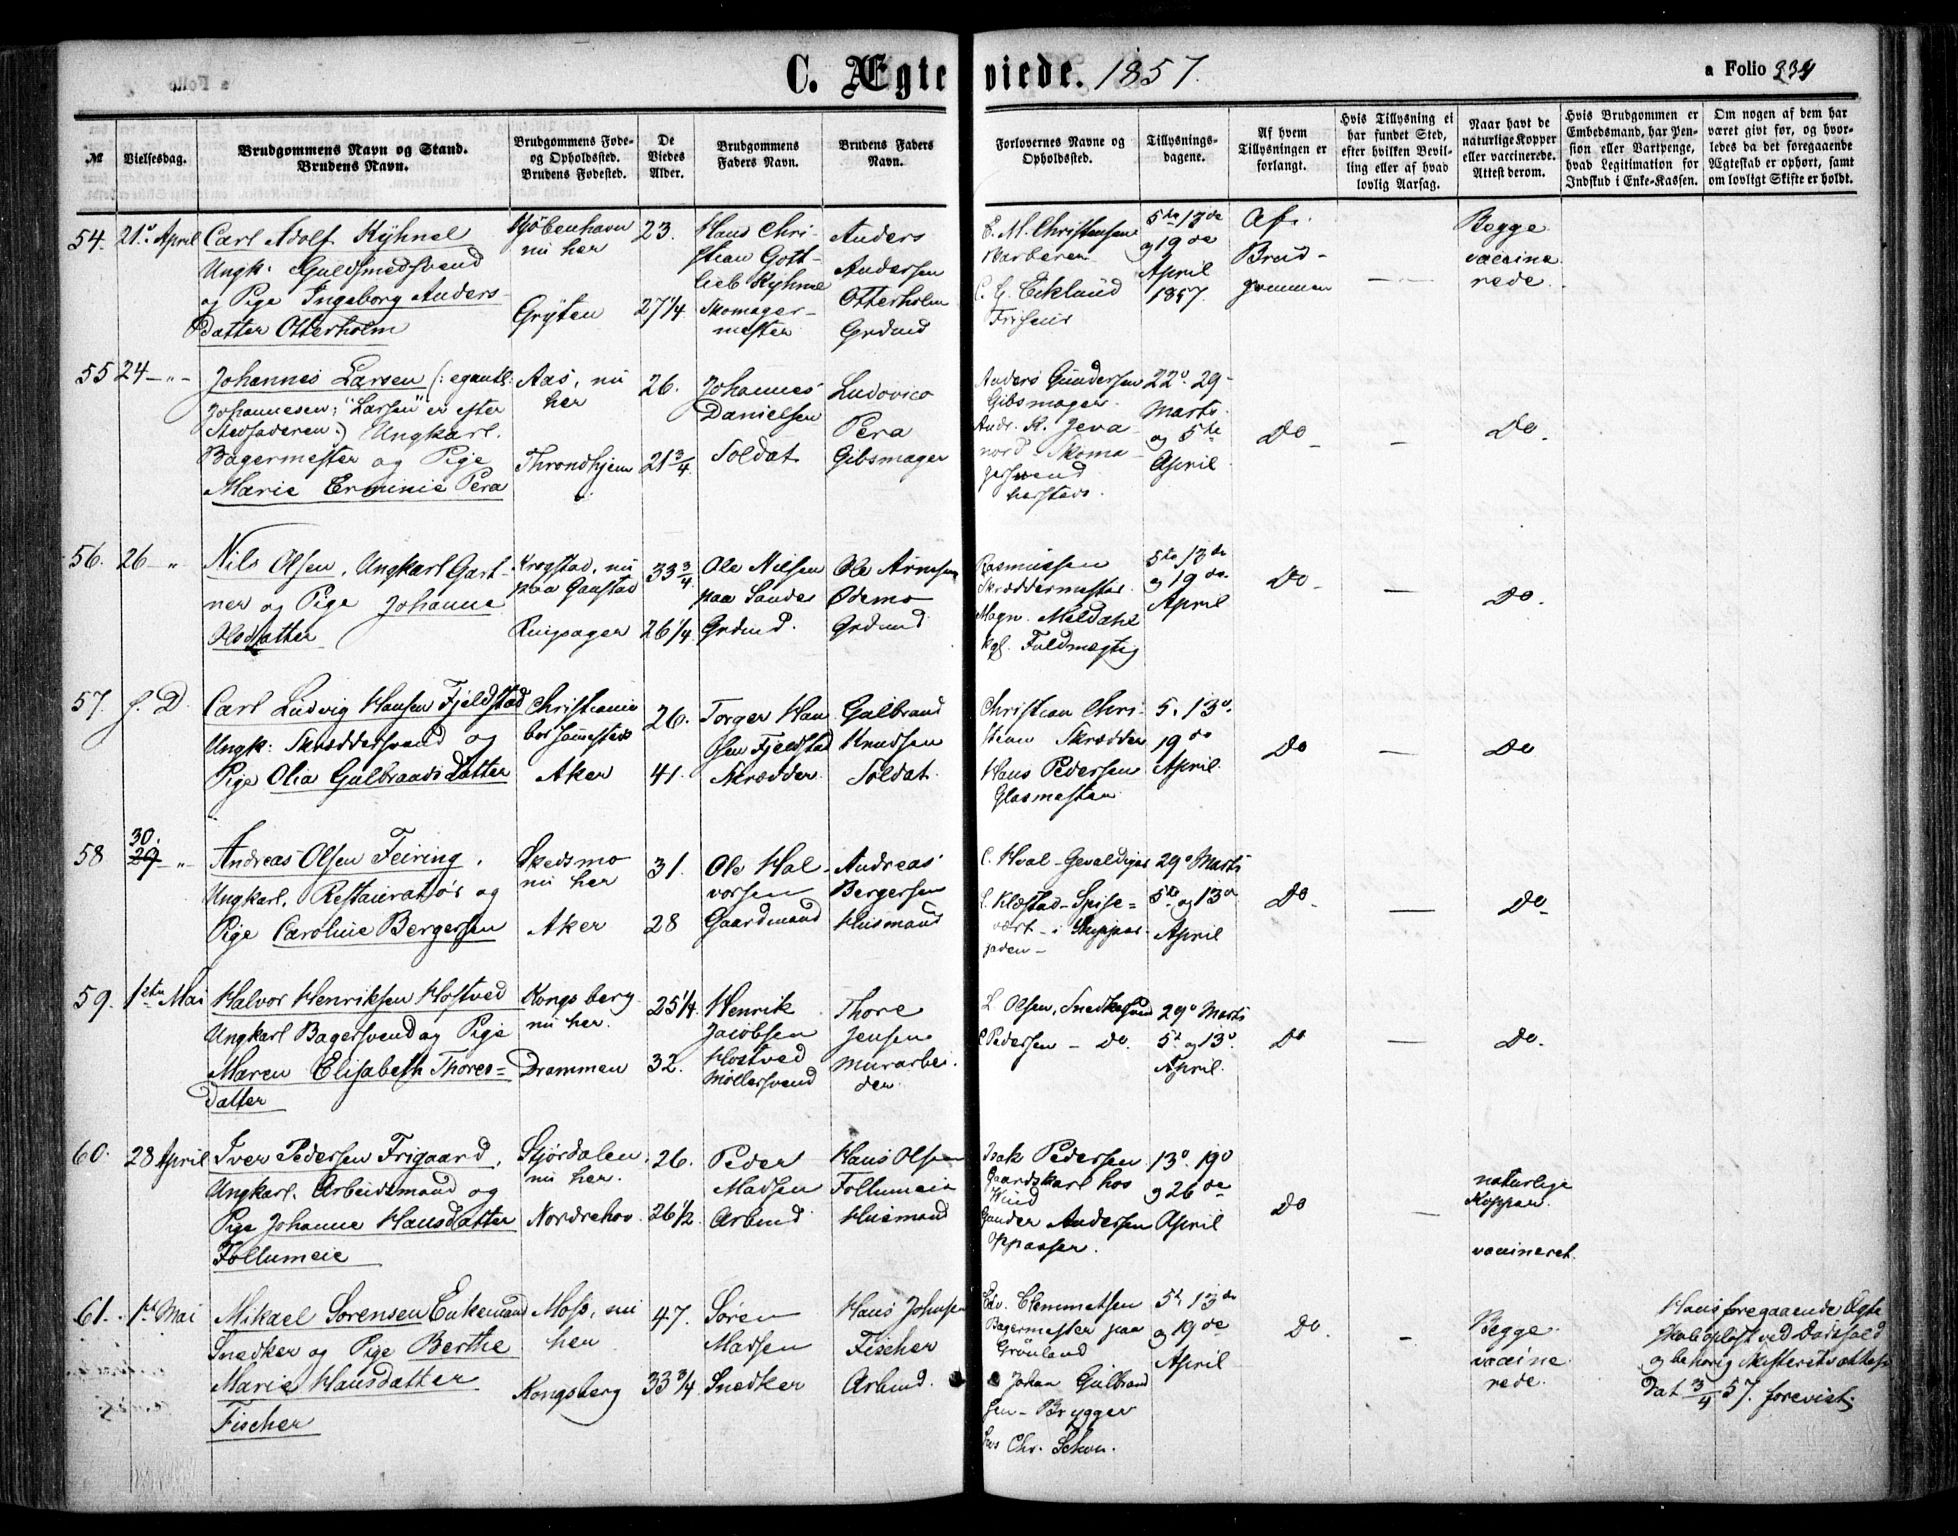 C. Ægteviede. 1857.
a Folio 234
№
Vielsesdag.
Brudgommens Navn og Stand.
Brudens Navn.
Brudgommens Føde-
og Opholdssted.
Brudens Fødested.
De
Viedes
Alder.
Brudgommens
Faders Navn.
Brudens Faders
Navn.
Forlovernes Navne og
Opholdssted.
Tillysnings-
dagene.
Af hvem
Tillysningen er
forlangt.
Hvis Tillysning ei
har fundet Sted,
efter hvilken Bevil-
ling eller af hvad
lovlig Aarsag.
Naar havt de
naturlige Kopper
eller vaccinerede.
Attest derom.
Hvis Brudgommen er
Embedsmand, har Pen-
sion eller Vartpenge,
hvad Legitimation for
Indskud i Enke-Kassen.
Om nogen af dem har
været givt før, og hvor-
ledes da det foregaaende
Ægteskab er ophørt, samt
om lovligt Skifte er holdt.
54. 21de April
Carl Adolf Kyhnel
Ungk: Guldsmedsvend
og Pige Ingeborg Anders-
datter Otterholm
Kjøbenhavn
nu her
Gryten
23.
27 1/4
Hans Chri-
stian Gott-
lieb Kyhnel
Skomager-
mester
Anders
Andersen
Otterholm
Grdmd
E. M. Christensen
Barberer
C. G. Ecklund
Friseur
5te 13de
og 19de
April
1857.
Af
Brud-
gommen
—
Begge
vaccine
rede.
55 24 — " —
Johannes Larsen (: egentl:
Johannesen; "Larsen" er efter
Stedfaderen:) Ungkarl.
Bagermester og Pige
Marie Erminie Pera
Aas, nu
her
Throndhjem
26.
21 3/4
Johannes
Danielsen
Soldat
Ludovico
Pera
Gibsmager
Anders Gundersen
Gibsmager
Andr. K. Jeva-
nord Skoma-
gersvend
hersteds.
22d 29
Marts
og 5te
April
Do
—
Do.
56. 26 — "
Nils Olsen, Ungkarl Gart-
ner og Pige Johanne
Olsdatter
Krogstad, nu
paa Gaustad
Ringsager
33 3/4
26 1/4
Ole Nilsen
paa Sander
Grdmd.
Ole Arnesen
Ødemo
Grdmd
Rasmussen
Skræddermester
Magn. Meldahl
kgl. Fuldmægtig
5te 13de
og 19de
April
Do
—
Do.
57. s. D.
Carl Ludvig Hansen Fjeldstad
Ungk: Skræddersvend og
Pige Olia Gulbrandsdatter
Christiania
bor sammesteds
Aker
26.
41.
Torger Han
sen Fjeldstad
Skrædder
Gulbrand
Knudsen
Soldat.
Christian Chri-
stian Skrædder
Hans Pedersen
Glasmester
5. 13d.
19de
April.
Do
—
Do
58 30. 29 — "
Andreas Olsen Feiring,
Ungkarl, Restauratør og
Pige Caroline Bergersen
Skedsmo
nu her
Aker
31.
28
Ole Hal-
vorsen
Gaardmand
Andreas
Bergersen
Husmand
C. Hval – Gevaldiger
L. Klæstad – Spise-
vært – i Skipper
gaden –
29d Marts
5te og 13d
April
Do
—
Do
59. 1ste Mai
Halvor Henriksen Hostved
Ungkarl Bagersvend og Pige
Maren Elisabeth Thores-
datter
Kongsberg
nu her.
Drammen
25 1/4
32.
Henrik
Jacobsen
Hostved
Møllersvend
Thore
Jensen
Murarbei-
der.
L. Olsen, Snedkersvend
C Pedersen – Do.
29d Marts
5te og 13d.
April.
Do
—
Do.
60. 28 April
Iver Pedersen Frigaard,
Ungkarl. Arbeidsmand og
Pige Johanne Hansdatter
Follumeie
Stjørdalen
nu her.
Nordrehov.
26.
26 1/2
Peder
Madsen
Arbmd
Hans Olsen
Follumeie
Husmand
Isak Pedersen
Gaardskarl hos
Gunder Andersen
Oppasser.
13d. 19d
og 26de
April
Do
—
naturlige
Kopper.
vaccineret.
61. 1ste Mai
Mikael Sørensen Enkemand
Snedker og Pige Berthe
Marie Hansdatter
Fischer
Moss, nu
her
Kongsberg
47.
33 3/4
Søren
Madsen
Snedker
Hans Johnsen
Fischer
Arbmd.
Edv. Clemmetsen
Bagermester paa
Grønland
Johan Gulbrand
sen – Brygger
hos Chr. Schou.
5te 13de
og 19de
April
Do.
—
Begge
vaccine
rede.
Hans foregaaende Ægte
skab opløst ved Dødsfald
og behørig Skifteretsattest
Dat 3/4 57. forevist.